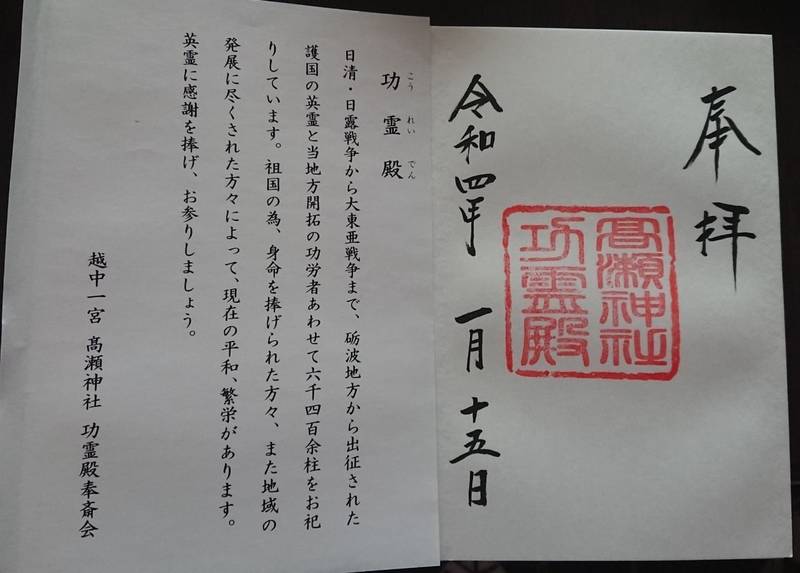 奉拝
高瀬神社
功霊殿
令和四年 一月十五日
功霊殿
こう れい でん
日清・日露戦争から大東亜戦争まで、砺波地方から出征された
護国の英霊と当地方開拓の功労者あわせて六千四百余柱をお祀
りしています。祖国の為、身命を捧げられた方々、また地域の
発展に尽くされた方々によって、現在の平和、繁栄があります。
英霊に感謝を捧げ、お参りしましょう。
越中一宮 髙瀬神社 功霊殿奉斎会